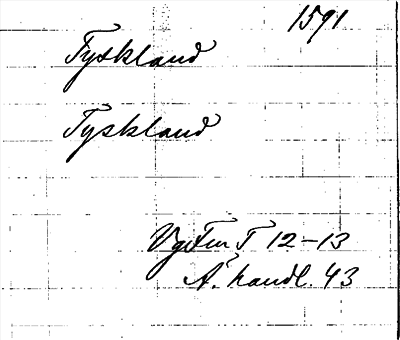 1591
Tyskland
Tyskland
Vg Fm T 12-13
A. handl. 43